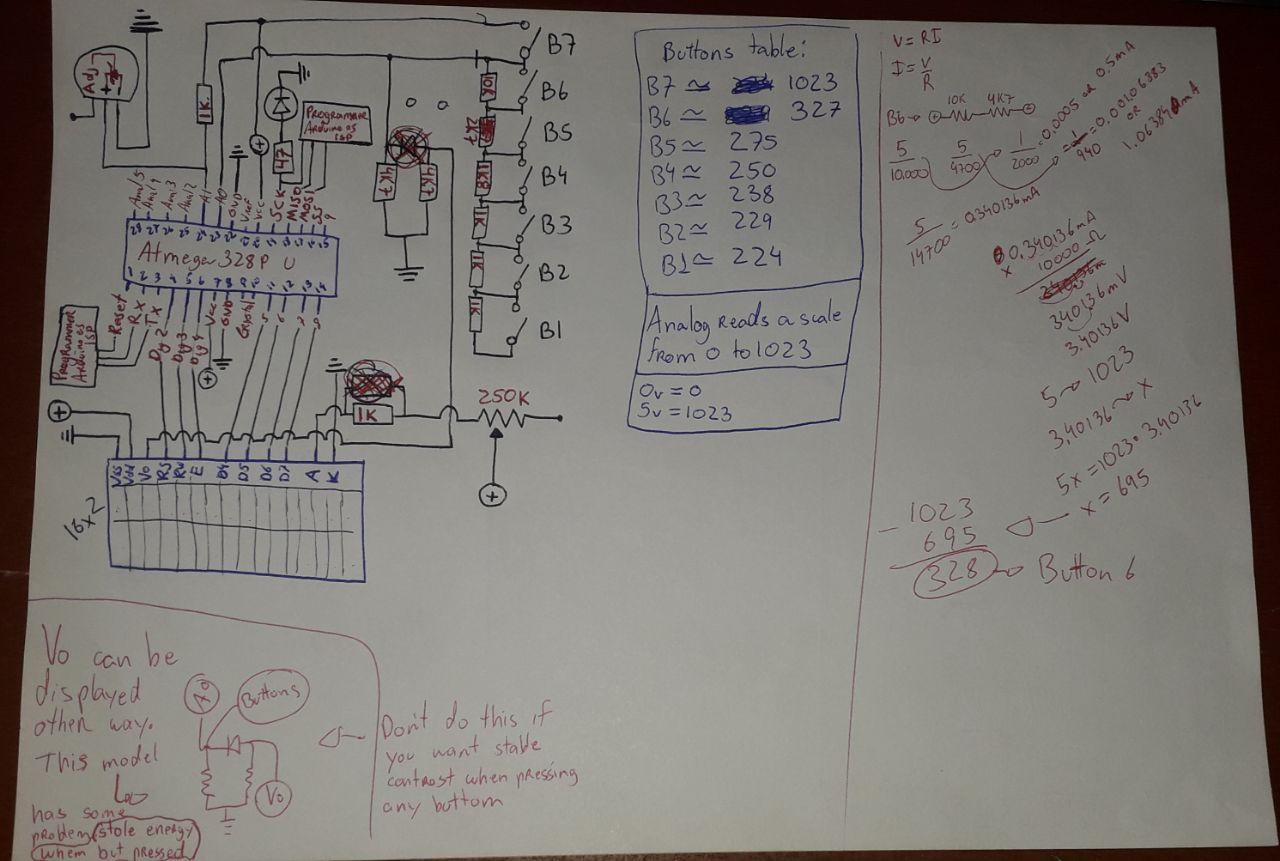 Adj
1K
Programmer
Arduino as
ISP
47
Anal5
Anal4
Anal3
Anal2
A1
A0
GND
Vref
Vcc
SCK
MISO
MOSI
Atmega 328P U
Reset
RX
TX
Dig2
Dig3
Dig4
Vcc
GND
Crystal
5
6
7
8
Programmer
Arduino as
ISP
4K7
4K7
10K
2K7
1K8
1K
1K
1K
B7
B6
B5
B4
B3
B2
B1
250K
1K
Vss
Vdd
Vo
RS
RW
E
D4
D5
D6
D7
A
K
16x2
Buttons table:
B7 ≃ 1023
B6 ≃ 327
B5 ≃ 275
B4 ≃ 250
B3 ≃ 238
B2 ≃ 229
B1 ≃ 224
Analog reads a scale
from 0 to 1023
0v = 0
5v = 1023
V = RI
I = V/R
B6 10K 4K7
5/10000 5/4700 1/2000 = 0.0005 or 0.5mA
1/940 = 0.00106383
or
5/14700 = 0.340136mA
0.340136mA
x 10000 Ω
340136mV
3.40136V
5 → 1023
3.40136 → x
5x = 1023 • 3.40136
x = 695
1023
- 695
328 → Button 6
Vo can be
displayed
other way.
This model
has some
problem stole energy
whem but pressed
A0
Buttons
Vo
Don't do this if
you want stable
contrast when pressing
any buttom